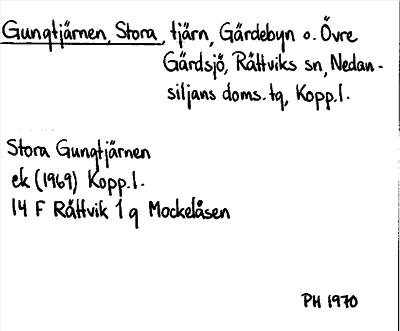 Gungtjärnen, Stora, tjärn, Gärdebyn o. Övre
Gärdsjö, Rättviks sn, Nedan-
siljans doms. tg, Kopp. l.
Stora Gungtjärnen
ek (1969) Kopp. l.
14 F Rättvik 1 g Mockelåsen
PH 1970